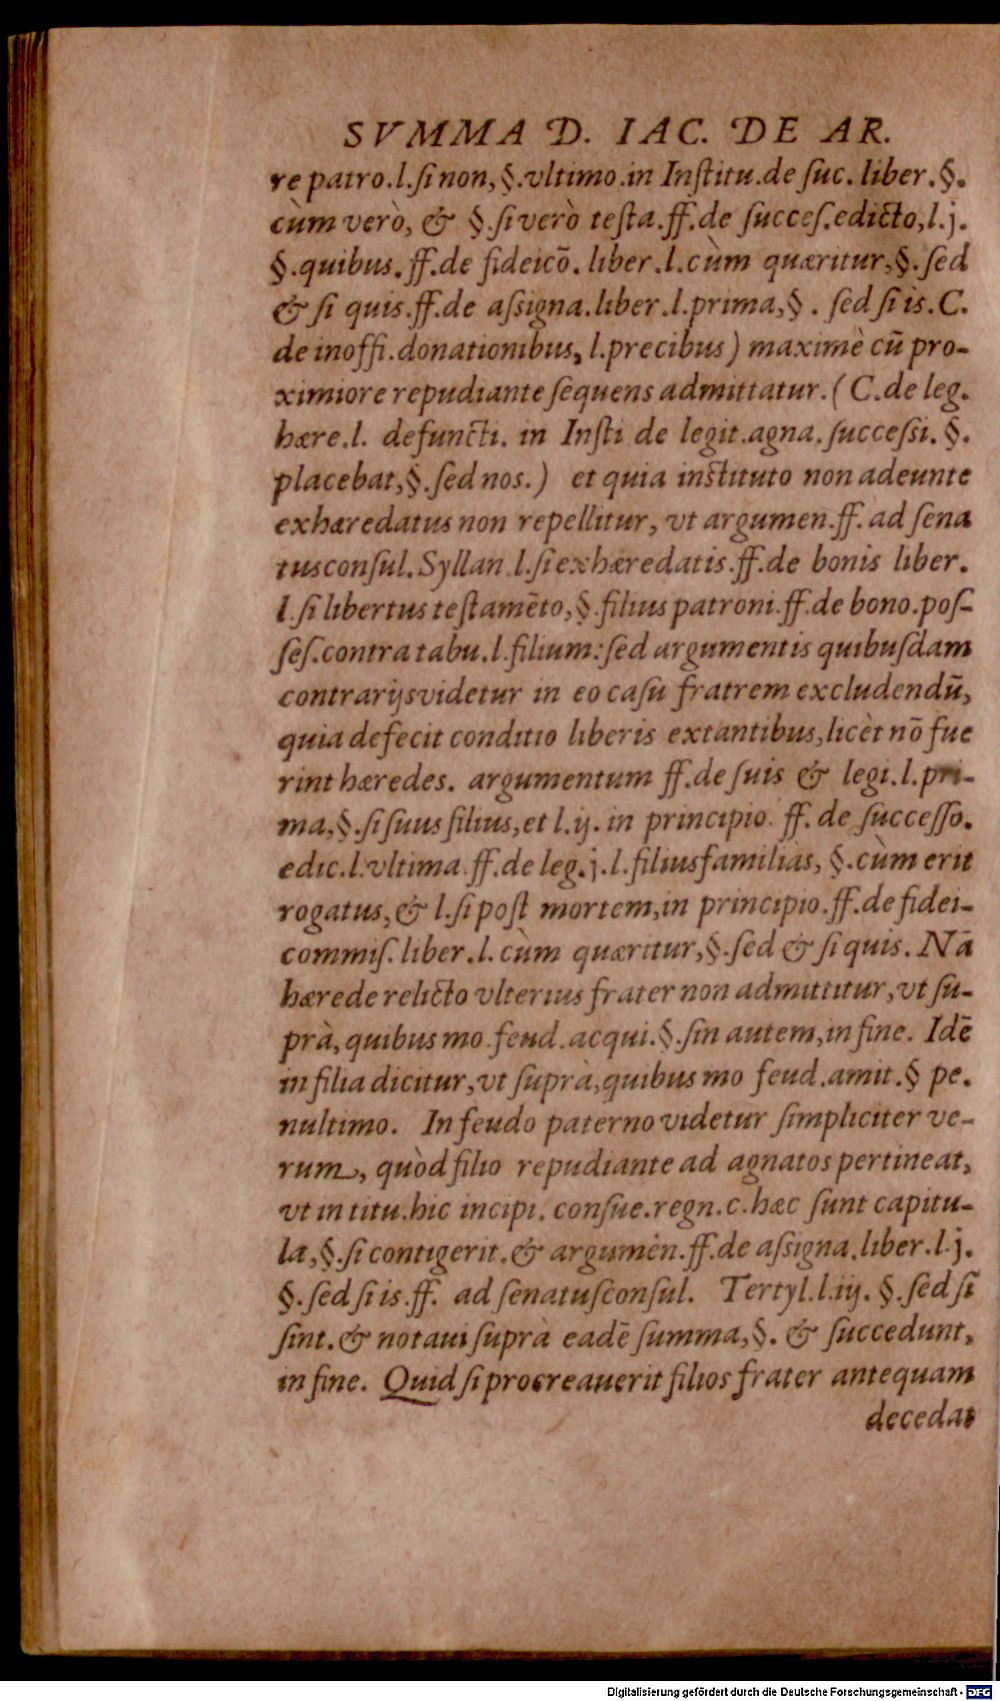 SVMMA D. IAC. DE AR.
re patro.l.ſi non, §.vltimo.in Inſtitu.de ſuc. liber.§.
cùm verò, & §.ſi verò teſta.ff.de ſucceſ.edicto,l.j.
§.quibus.ff.de fideicō.liber.l.cùm quæritur,§.ſed
& ſi quis.ff.de aſsigna.liber.l.prima,§. ſed ſi is.C.
de inoffi.donationibus, l.precibus) maximè cū pro-
ximiore repudiante ſequens admittatur.( C.de leg.
hære.l. defuncti. in Inſti de legit.agna.ſucceſsi.§.
placebat,§.ſed nos.) et quia inſtituto non adeunte
exhæredatus non repellitur, vt argumen.ff.ad ſena
tusconſul.Syllan.l.ſi exhæredatis.ff.de bonis liber.
l.ſi libertus teſtamēto,§.filius patroni.ff.de bono.poſ-
ſeſ.contra tabu.l.filium:ſed argumentis quibuſdam
contrarijs videtur in eo caſu fratrem excludendū,
quia defecit conditio liberis extantibus,licèt nō fue
rint hæredes. argumentum ff.de ſuis & legi.l.pri-
ma,§.ſi ſuus filius,et l.ij. in principio. ff. de ſucceſſo.
edic.l.vltima.ff.de leg.j.l.filiusfamiliàs, §.cùm erit
rogatus,& l.ſi poſt mortem,in principio.ff.de fidei-
commiſ.liber.l.cùm quæritur,§.ſed & ſi quis. Nā
hærede relicto vlterius frater non admittitur,vt ſu-
prà,quibus mo.feud.acqui.§.ſin autem,in fine. Idē
in filia dicitur,vt ſuprà,quibus mo feud.amit.§ pe.
nultimo. In feudo paterno videtur ſimpliciter ve-
rum, quòd filio repudiante ad agnatos pertineat,
vt in titu.hic incipi. conſue.regn.c.hæc ſunt capitu-
la,§.ſi contigerit.& argumèn.ff.de aſsigna.liber.l.j.
§.ſed ſi is.ff. ad ſenatuſconſul. Tertyl.l.iij. §.ſed ſi
ſint.& notaui ſuprà eadē ſumma,§. & ſuccedunt,
in fine. Quid ſi procreauerit filios frater antequam
decedat
Digitalisierung gefördert durch die Deutsche Forschungsgemeinschaft - DFG